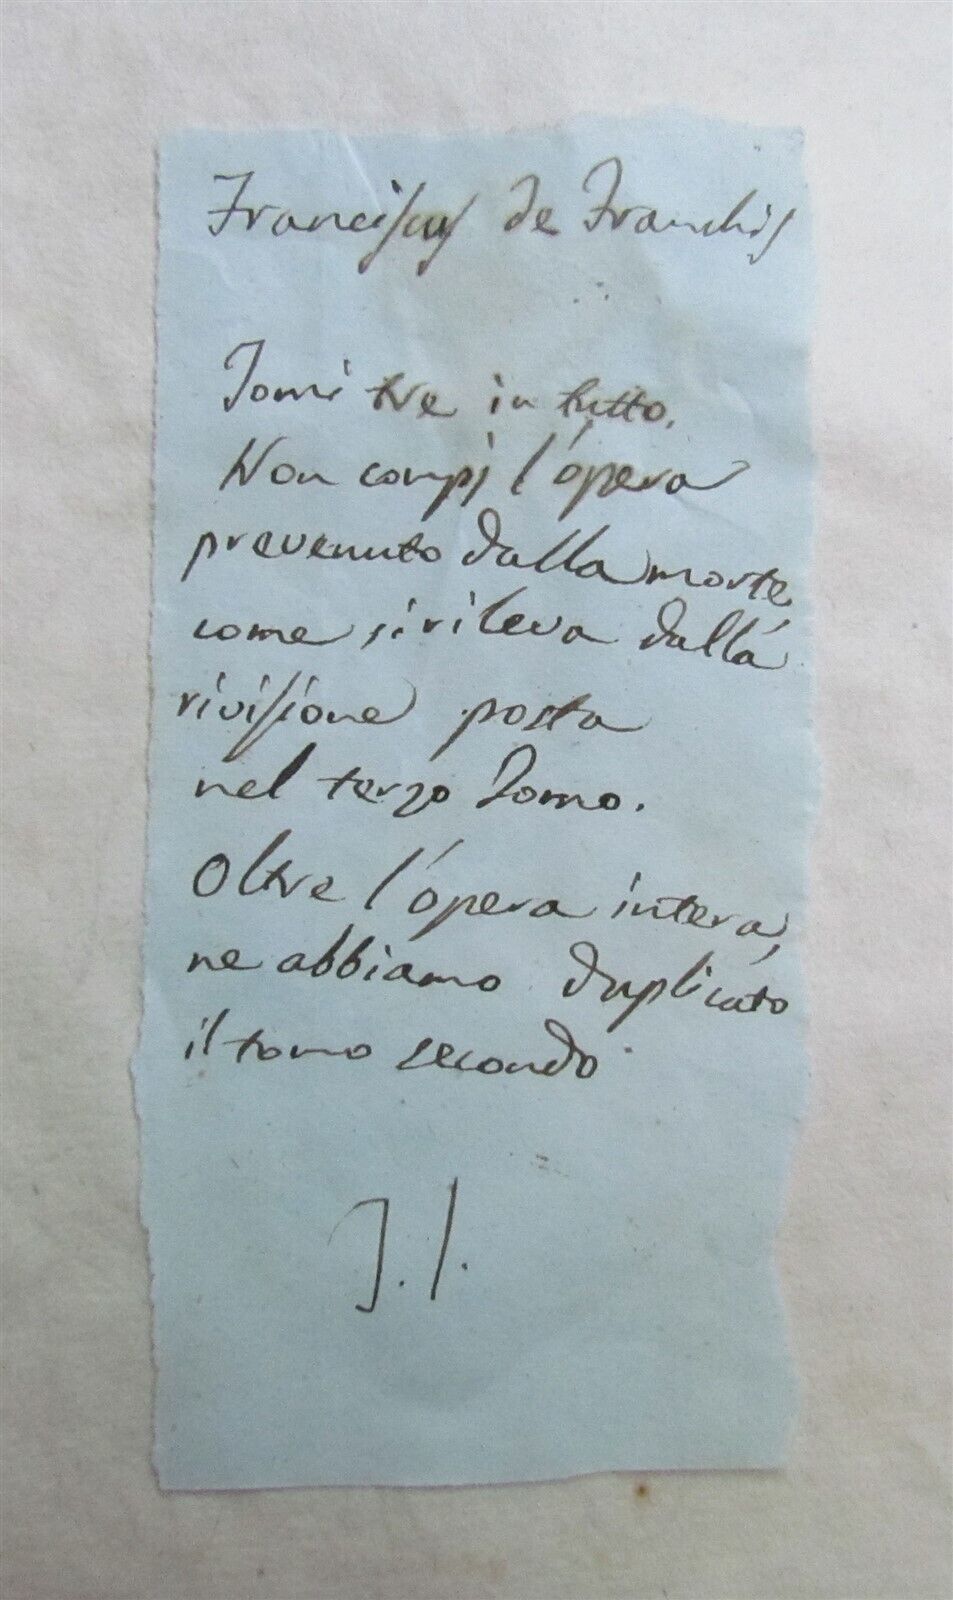 Franciscus de Franchis
Tomi tre in tutto.
Non compj l'opera
prevenuto dalla morte,
come si rileva dalla
rivisione posta
nel terzo Tomo.
Oltre l'opera intera,
ne abbiamo duplicato
il tomo secondo.
T. I.